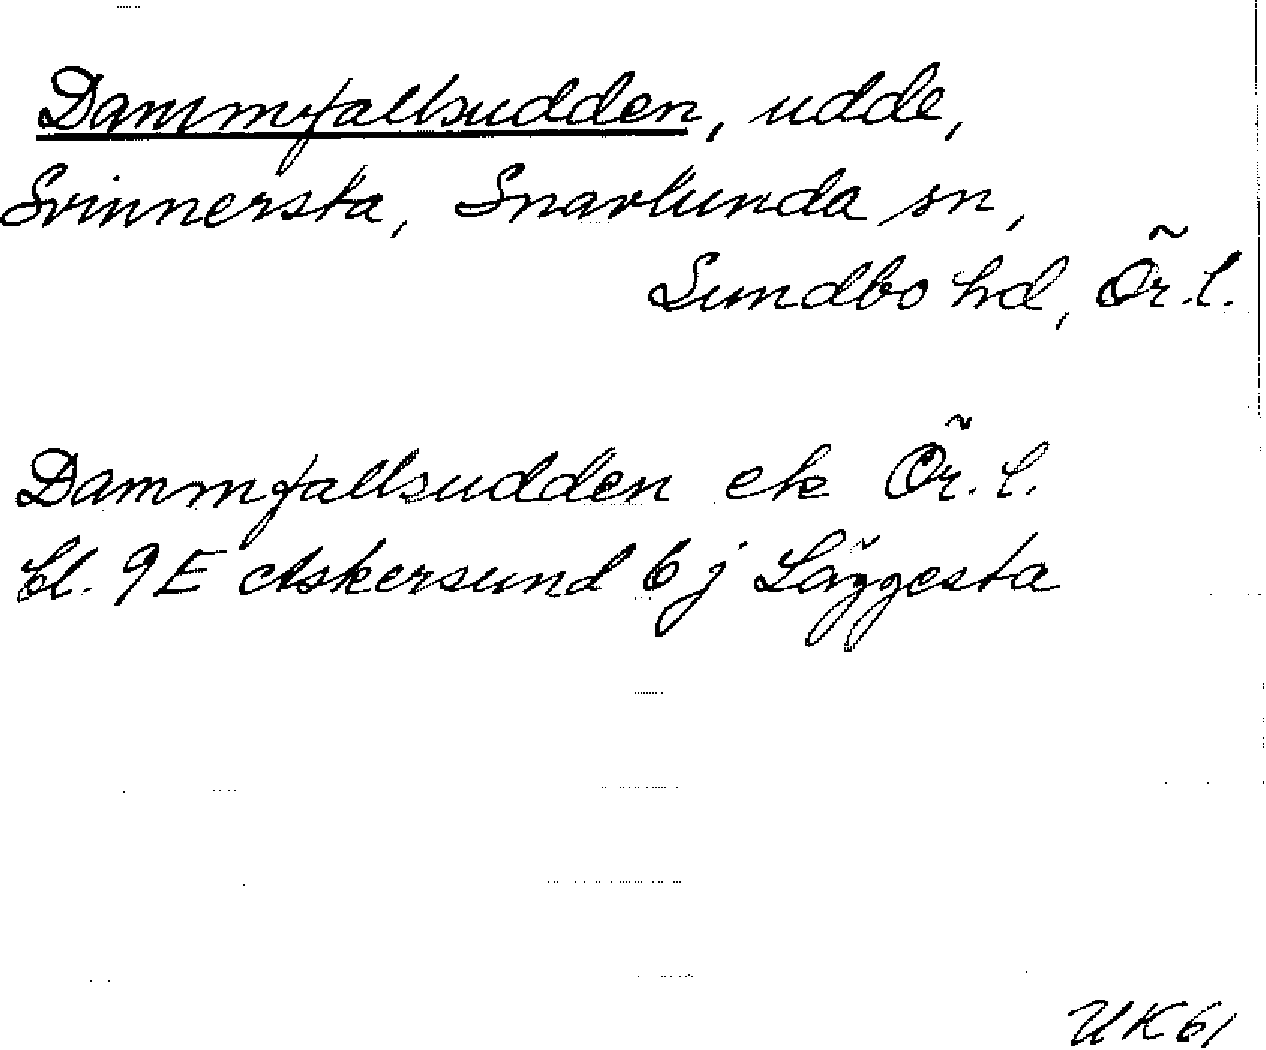 Dammfallsudden, udde,
Svinnersta, Snavlunda sn,
Sundbo hd, Ör. l.
Dammfallsudden ek Ör. l.
bl. 9E Askersund 6j Läggesta
UK 61